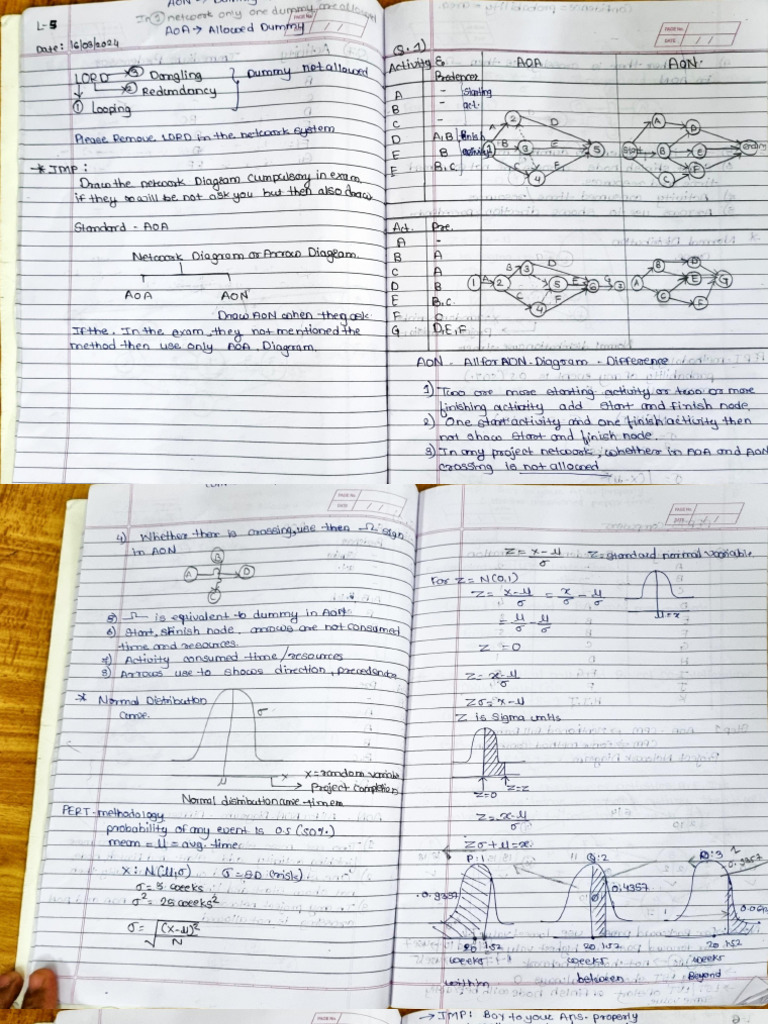 AON →
In ③ network only one dummy are allowed
AOA → Allowed Dummy
L-5
Date: 16/03/2024
PAGE No.
DATE / /
LORD → ③ Dangling
→ ② Redundancy
① Looping
Dummy not allowed
Please Remove LORD in the network system
* IMP:
Draw the network Diagram Cumpulsory in exam
if they will be not ask you but then also draw
Standard - AOA
Network Diagram or Arrow Diagram.
AOA AON
Draw AON when they ask.
If the, In the exam, they not mentioned the
method then use only AOA Diagram.
PAGE No.
DATE / /
Q.1)
Activity Predences AOA AON
A - starting
B - act.
C -
D A,B finish
E B activity
F B,C.
1 2 3 4 5
A B C D E F
Start A B C D E F end
Act. Pre.
A -
B A
C A
D B
E B.C.
F C
G D,E,F
1 A 2 B 3 D C 4 5 E F 6 G
A B C D E F G
AON - All for AON - Diagram - Difference
1) Two are more starting activity or two or more
finishing activity add start and finish node.
2) One start activity and one finish activity then
not show start and finish node.
3) In any project network, whether in AOA and AON
crossing is not allowed
PAGE No.
DATE / /
4) Whether there is crossing, use then sign
in AON
A B C D
5) is equivalent to dummy in AOA
6) Start, finish node, arrows are not consumed
time and resources.
7) Activity consumed time/resources
8) Arrows use to shows direction, precedence
* Normal Distribution
Curve.
σ
μ
x x = random variable
→ Project completion
Normal distribution curve - time
PERT-methodology
probability of any event is 0.5 (50%)
mean = μ = avg. time
X: N(μ,σ) σ = SD (risk)
σ = 5 weeks
σ² = 25 weeks²
σ = √(x-μ)²/N
PAGE No.
DATE / /
Z = x-μ/σ Z = standard normal variable.
For Z = N(0,1)
Z = x-μ/σ = x/σ - μ/σ
μ=x
= μ/σ - μ/σ
Z = 0
Z = x-μ/σ
Zσ = x-μ
Z is Sigma units
Z=0 Z=z
Z = x-μ/σ
Zσ + μ = x.
P:1 Q:2 Q:3
0.9357 0.4357 0.9357
20 1.52 20 1.52 20 1.52
weeks weeks weeks
within between Beyond
→ IMP: Box to your Ans. properly